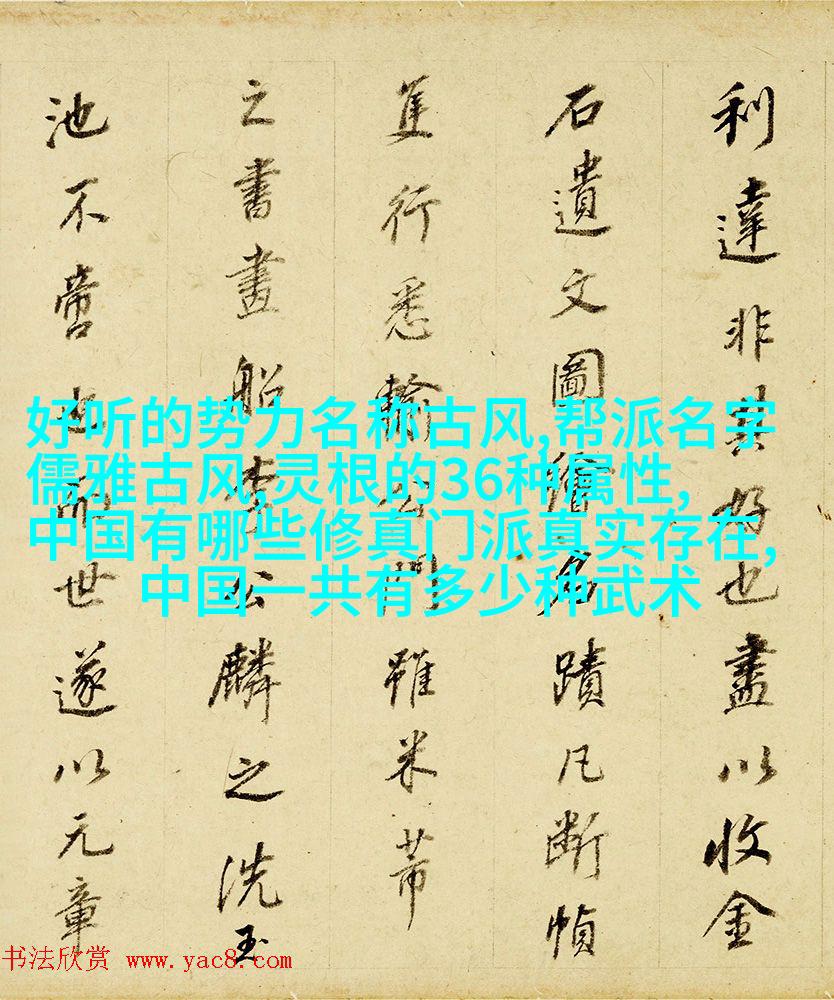 利達非其好也盡以收金
石遺文圖繪名蹟凡斷幀
隻行悉輸公門雖米芾
之書畫船李公麟之洗玉
池不啻也而世遂以元章
好听的势力名称古风,帮派名字
儒雅古风,灵根的36种属性,
中国有哪些修真门派真实存在,
中国一共有多少种武术
书法欣赏 www.yac8.com